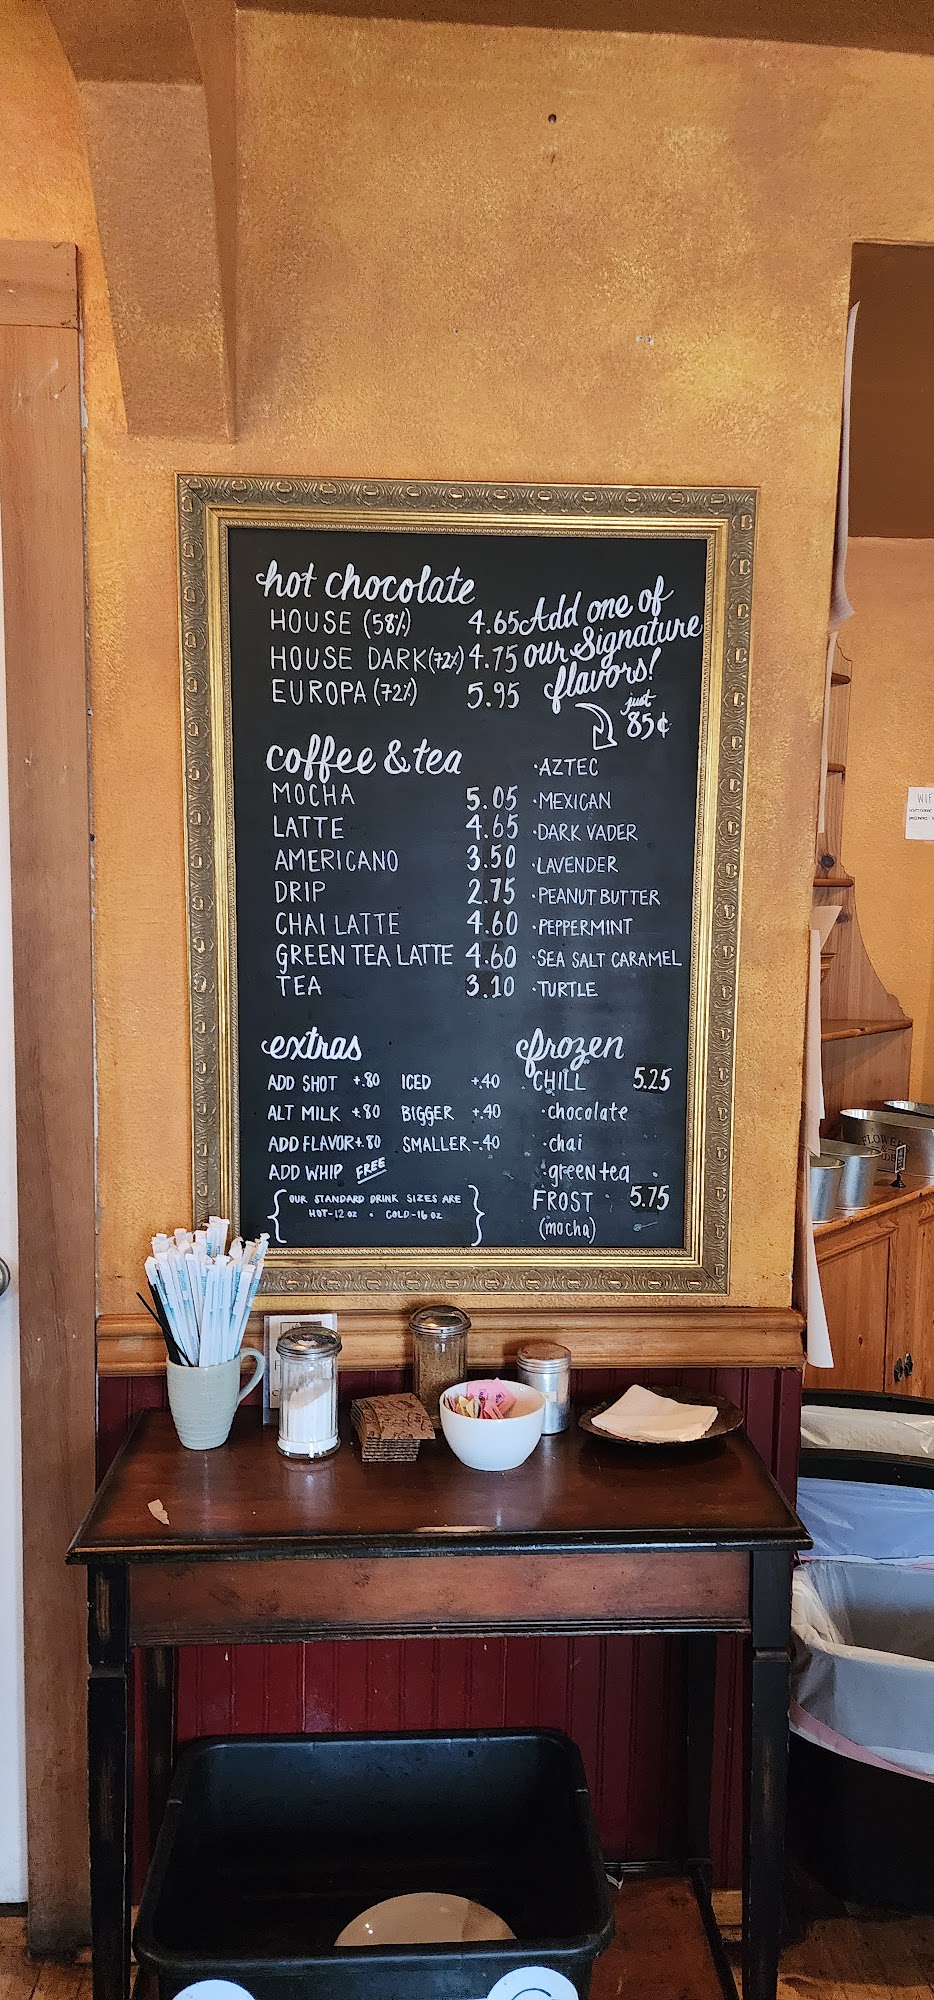 hot chocolate
HOUSE (58%) 4.65
HOUSE DARK (72%) 4.75
EUROPA (72%) 5.95
Add one of
our Signature
flavors!
just
85¢
·AZTEC
·MEXICAN
·DARK VADER
·LAVENDER
·PEANUT BUTTER
·PEPPERMINT
·SEA SALT CARAMEL
·TURTLE
coffee & tea
MOCHA 5.05
LATTE 4.65
AMERICANO 3.50
DRIP 2.75
CHAI LATTE 4.60
GREEN TEA LATTE 4.60
TEA 3.10
extras
ADD SHOT +.80 ICED +.40
ALT MILK +.80 BIGGER +.40
ADD FLAVOR +.80 SMALLER -.40
ADD WHIP FREE
{OUR STANDARD DRINK SIZES ARE
HOT-12 OZ • COLD-16 OZ}
frozen
CHILL 5.25
·chocolate
·chai
·green tea
FROST 5.75
(mocha)